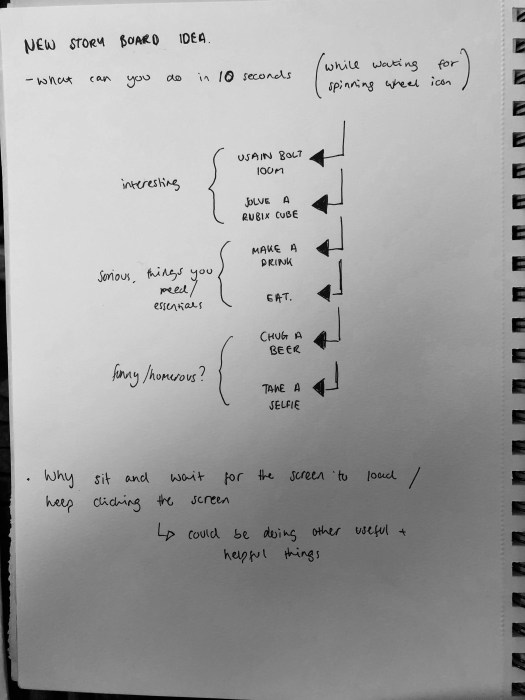 NEW STORY BOARD IDEA.
- what can you do in 10 seconds (while waiting for
spinning wheel icon)
interesting
USAIN BOLT
100M
SOLVE A
RUBIX CUBE
serious, things you
need/
essentials
MAKE A
DRINK
EAT.
funny/homerous?
CHUG A
BEER
TAKE A
SELFIE
. Why sit and wait for the screen to load /
keep clicking the screen
↳ could be doing other useful +
helpful things